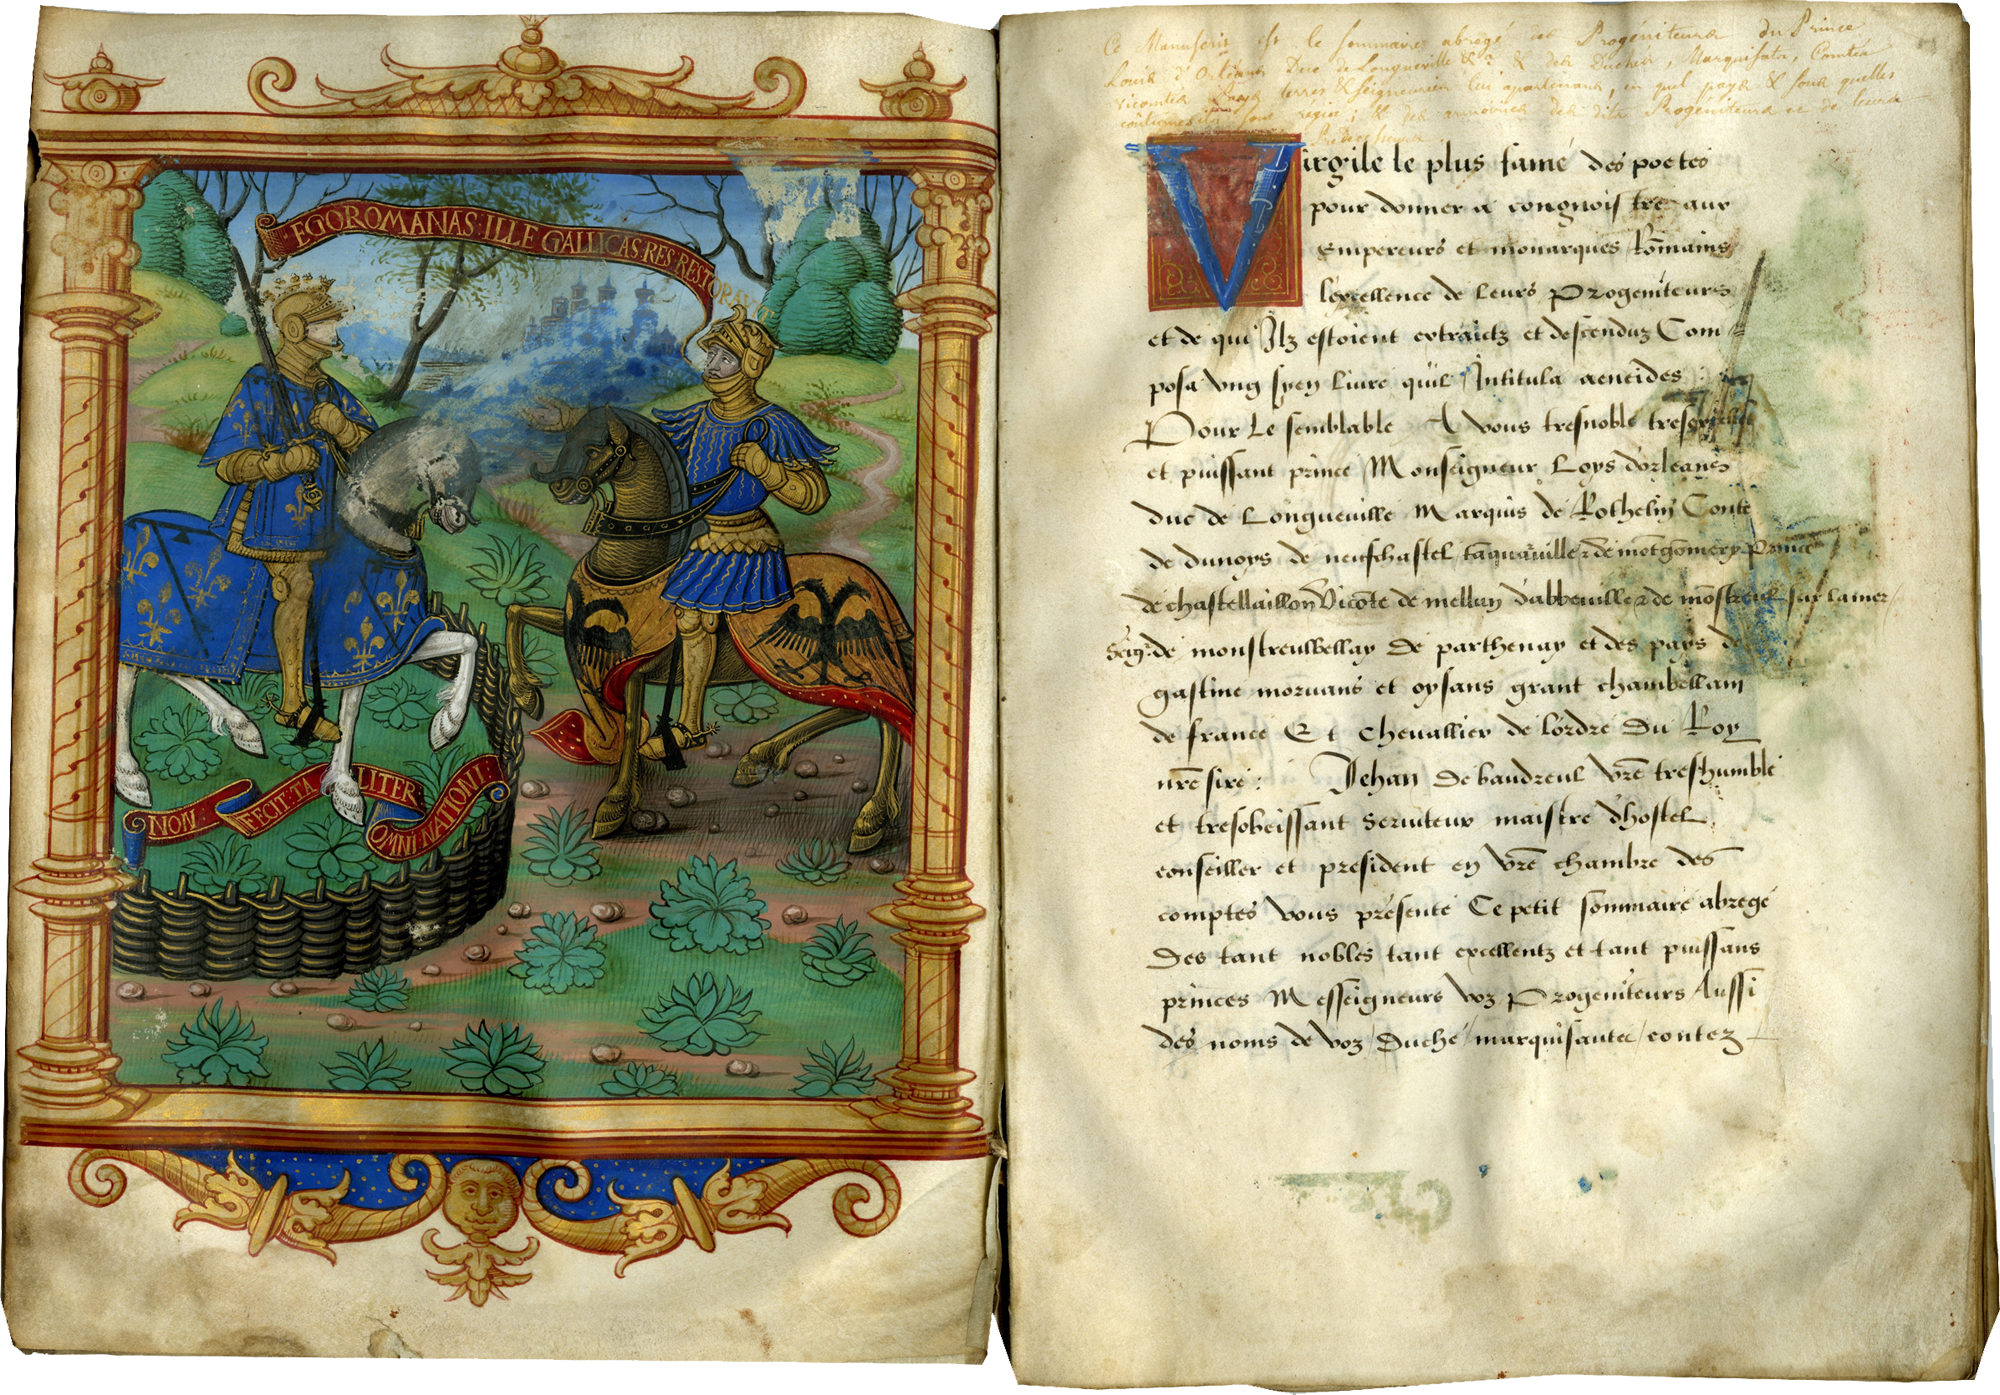 EGO ROMANAS : ILLE GALLICAS · RES · RESTORAVIT
NON : FECIT · TA LITER : OMNI · NATIONI :
Ce Manuscrit est le sommaire abregé des Progéniteurs du Prince
Louis d'Orléans Duc de Longueville &ca. & des Duchés, Marquisats, Comtés
Vicomtés Pays terres & Seigneuries lui apartenans, en quel pays & sous quelles
coûtumes ils sont régis ; & des armoiries des dits Progéniteurs et de leurs
Virgile le plus famé des poetes
pour donner a congnoistre aux
Empereurs et monarques Rõmains
lexcellence de leurs Progeniteurs
et de qui Ilz estoient extraictz et descenduz Com=
posa ung syen livre quil Intitula aeneides
Pour Le semblable A vous tresnoble tresexcellent
et puissant prince Monseigneur Loys dorleans
duc de Longueville Marquis de Rothelin Conte
de dunoys de neufchastel tãquarville & de mõtgomery Prince
de chastellaillon Vicõte de mellun dabbeville & de mõstreul sur la mer
Seigr. de monstreulbellay de parthenay et des pays de
gastine morvans et oysans grant chambellam
de france Et chevallier de lordre du Roy
nrẽ sire : Jehan de baudreul vrẽ treshumble
et tresobeissant serviteur maistre dhostel
conseiller et president en vrẽ chambre des
comptes vous presente Ce petit sommaire abrege
des tant nobles tant excellentz et tant puissans
princes Messeigneurs voz Progeniteurs Aussi
des noms de voz / Duche / marquisantez / contez